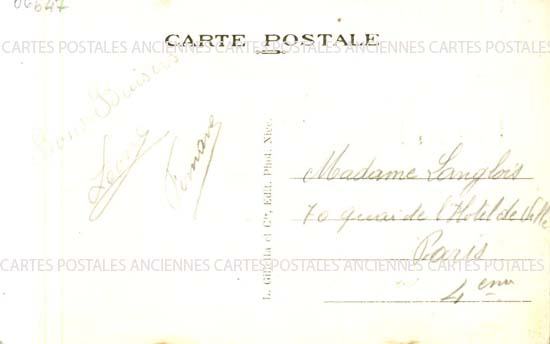 06647
CARTE POSTALE
CARTES POSTALES ANCIENNES CARTES POSTALES ANCIENNES CARTES POSTALES
Bons Baisers
Fernand
Edit. Phot. Nice.
Madame Langlois
70 quai de l'Hotel de Ville
Paris
4eme
CARTES POSTALES ANCIENNES CARTES POSTALES ANCIENNES CARTES POSTALES